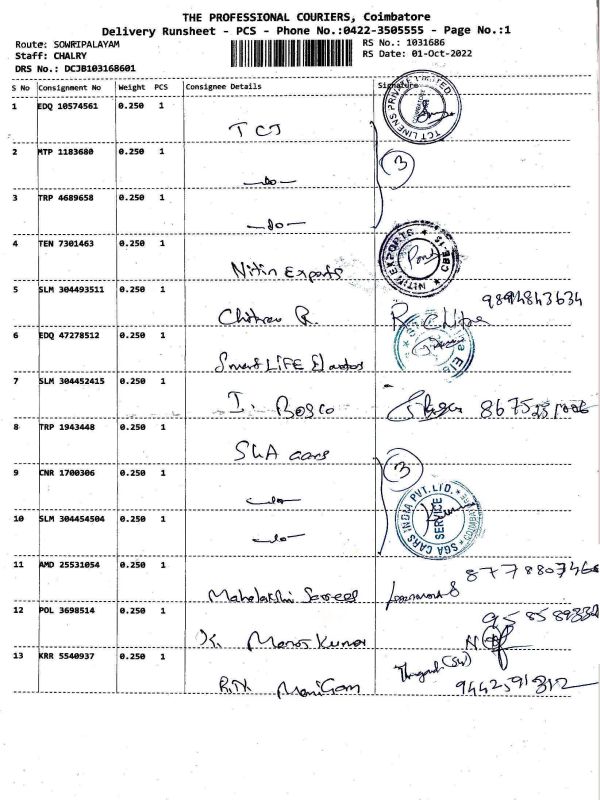 THE PROFESSIONAL COURIERS, Coimbatore
Delivery Runsheet - PCS - Phone No.:0422-3505555 - Page No.:1
Route: SOWRIPALAYAM RS No.: 1031686
Staff: CHALRY RS Date: 01-Oct-2022
DRS No.: DCJB103168601
S No Consignment No Weight PCS Consignee Details Signature
1 EDQ 10574561 0.250 1 TCT TCT LINENS PRIVATE LIMITED
2 MTP 1183680 0.250 1 -do- 3
3 TRP 4689658 0.250 1 -do-
4 TEN 7301463 0.250 1 Nitin Exports NITIN EXPORTS CBE-15
5 SLM 304493511 0.250 1 Chitra R. R. Chitra 9894843634
6 EDQ 47278512 0.250 1 Smart LIFE
7 SLM 304452415 0.250 1 I. Bosco
8 TRP 1943448 0.250 1 SGA cars
9 CNR 1700306 0.250 1 -do- 3
10 SLM 304454504 0.250 1 -do- SGA CARS INDIA PVT. LTD. SERVICE
11 AMD 25531054 0.250 1 Mahalakshmi Sarees
12 POL 3698514 0.250 1 K. Manoj Kumar
13 KRR 5540937 0.250 1 R.TK Manigam 9442591312